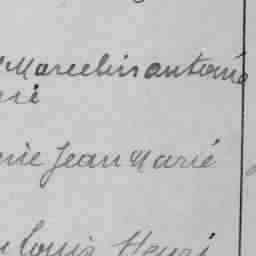 Marcelin antoine
rie
rie Jean Marie
Louis Henri